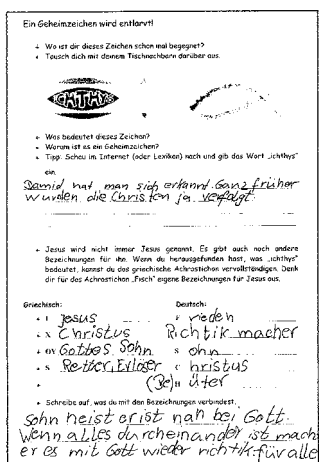 Ein Geheimzeichen wird entlarvt!
+ Wo ist dir dieses Zeichen schon mal begegnet?
+ Tausch dich mit deinem Tischnachbarn darüber aus.
ICHTHYS
+ Was bedeutet dieses Zeichen?
+ Warum ist es ein Geheimzeichen?
+ Tipp: Schau im Internet (oder Lexikon) nach und gib das Wort „ichthys"
ein.
Damid hat man sich erkannt. Ganz früher
wurden die Christen ja verfolgt.
+ Jesus wird nicht immer Jesus genannt. Es gibt auch noch andere
Bezeichnungen für ihn. Wenn du herausgefunden hast, was „ichthys"
bedeutet, kannst du das griechische Akrostichon vervollständigen. Denk
dir für das Akrostichon „Fisch" eigene Bezeichnungen für Jesus aus.
Griechisch: Deutsch:
+ I Jesus F rieden
+ X Christus Richtik macher
+ ΘY Gottes Sohn S ohn
+ S Retter, Erlöser C hristus
+ (Be)H üter
+ Schreibe auf, was du mit den Bezeichnungen verbindest.
Sohn heist er ist nah bei Gott.
Wenn alles durcheinander ist mach
er es mit Gott wieder richtik für alle